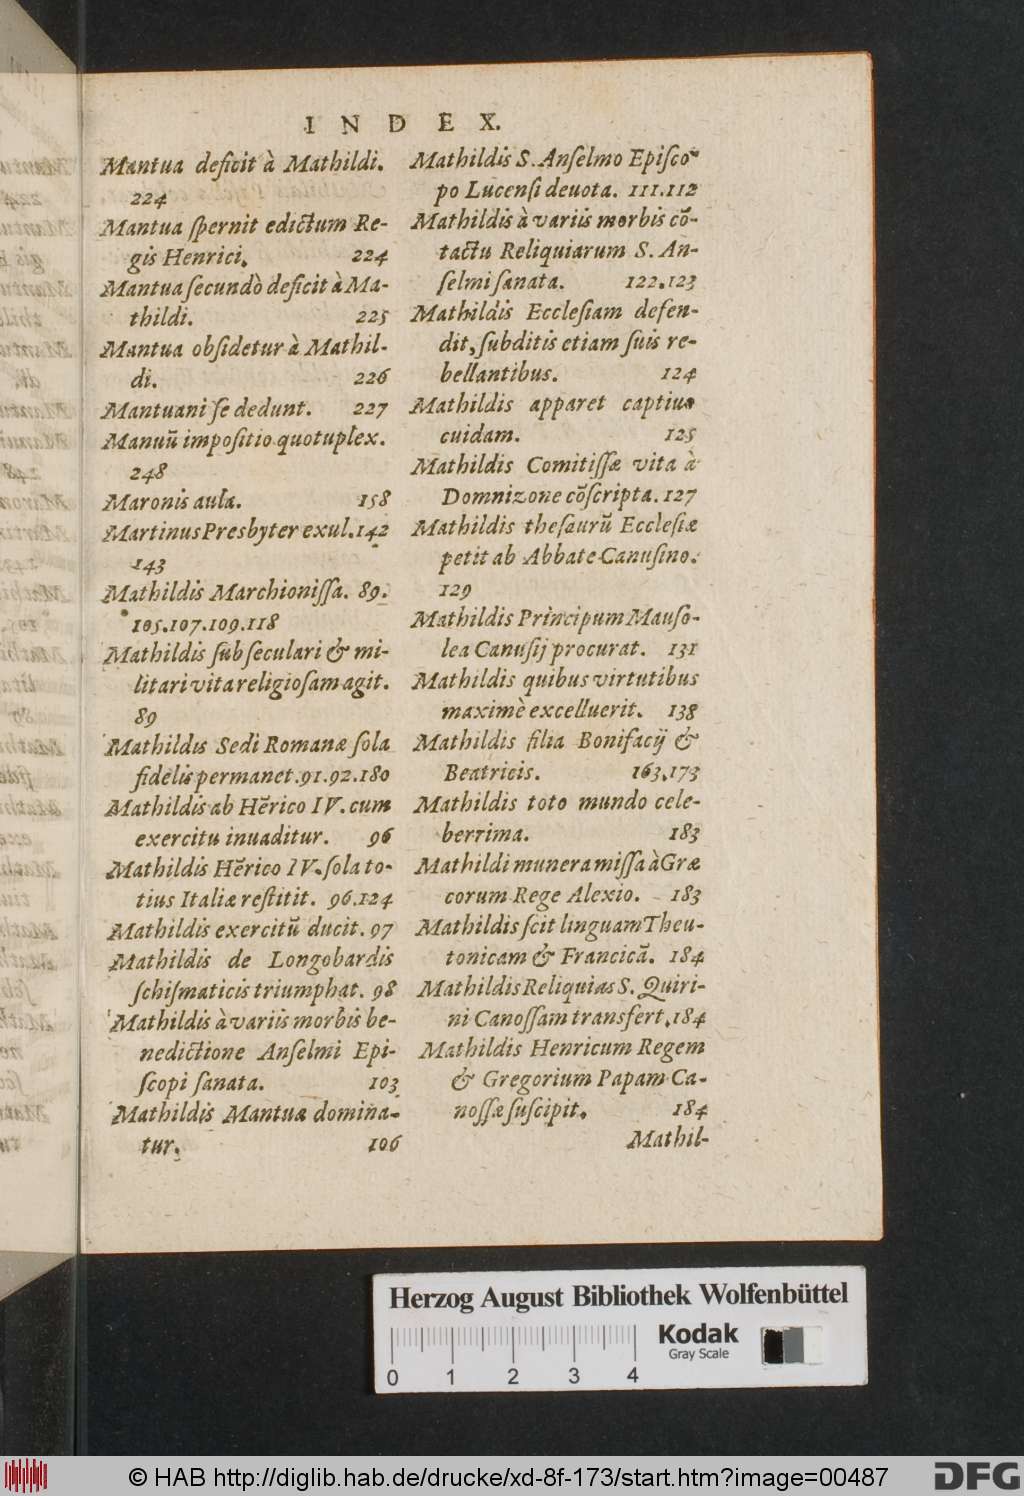 INDEX.
Mantua deficit à Mathildi.
224
Mantua ſpernit edictum Re-
gis Henrici. 224
Mantua ſecundò deficit à Ma-
thildi. 225
Mantua obſidetur à Mathil-
di. 226
Mantuani ſe dedunt. 227
Manuũ impoſitio quotuplex.
248
Maronis aula. 158
Martinus Presbyter exul. 142
143
Mathildis Marchioniſſa. 89.
105.107.109.118
Mathildis ſub ſeculari & mi-
litari vita religioſam agit.
89
Mathildis Sedi Romanæ ſola
fidelis permanet. 91.92.180
Mathildis ab Hẽrico IV. cum
exercitu inuaditur. 96
Mathildis Hẽrico IV. ſola to-
tius Italiæ reſtitit. 96.124
Mathildis exercitũ ducit. 97
Mathildis de Longobardis
ſchiſmaticis triumphat. 98
Mathildis à variis morbis be-
nedictione Anſelmi Epi-
ſcopi ſanata. 103
Mathildis Mantuæ domina-
tur. 106
Mathildis S. Anſelmo Epiſco-
po Lucenſi deuota. 111.112
Mathildis à variis morbis cõ-
tactu Reliquiarum S. An-
ſelmi ſanata. 122.123
Mathildis Eccleſiam defen-
dit, ſubditis etiam ſuis re-
bellantibus. 124
Mathildis apparet captiuo
cuidam. 125
Mathildis Comitiſſæ vita à
Domnizone cõſcripta. 127
Mathildis theſaurũ Eccleſiæ
petit ab Abbate Canuſino.
129
Mathildis Principum Mauſo-
lea Canuſij procurat. 131
Mathildis quibus virtutibus
maximè excelluerit. 138
Mathildis filia Bonifacij &
Beatricis. 163.173
Mathildis toto mundo cele-
berrima. 183
Mathildi munera miſſa à Græ
corum Rege Alexio. 183
Mathildis ſcit linguam Theu-
tonicam & Francicã. 184
Mathildis Reliquias S. Quiri-
ni Canoſſam transfert. 184
Mathildis Henricum Regem
& Gregorium Papam Ca-
noſſæ ſuſcipit. 184
Mathil-
Herzog August Bibliothek Wolfenbüttel
Kodak
Gray Scale
0 1 2 3 4
© HAB http://diglib.hab.de/drucke/xd-8f-173/start.htm?image=00487
DFG